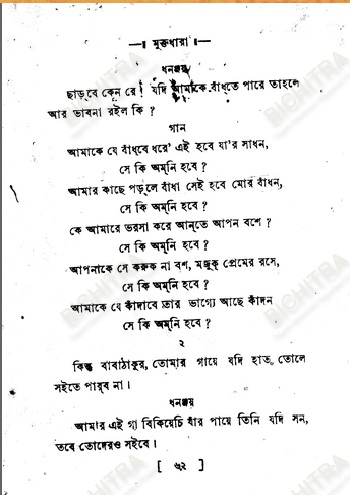 —। মুক্তধারা।—
ধনঞ্জয়
ছাড়বে কেন রে। যদি আমাকে বাঁধতে পারে তাহলে
আর ভাবনা রইল কি ?
গান
আমাকে যে বাঁধবে ধরে' এই হবে যা'র সাধন,
সে কি অম্‌নি হবে ?
আমার কাছে পড়্‌লে বাঁধা সেই হবে মোর বাঁধন,
সে কি অম্‌নি হবে ?
কে আমারে ভরসা করে আন্‌তে আপন বশে ?
সে কি অম্‌নি হবে ?
আপনাকে সে করুক না বশ, মজুক্ প্রেমের রসে,
সে কি অম্‌নি হবে ?
আমাকে যে কাঁদাবে তার ভাগ্যে আছে কাঁদন
সে কি অম্‌নি হবে ?
২
কিন্তু বাবাঠাকুর, তোমার গায়ে যদি হাত তোলে
সইতে পারব না।
ধনঞ্জয়
আমার এই গা বিকিয়েচি যাঁর পায়ে তিনি যদি সন,
তবে তোদেরও সইবে।
[ ৬২ ]
BICHITRA